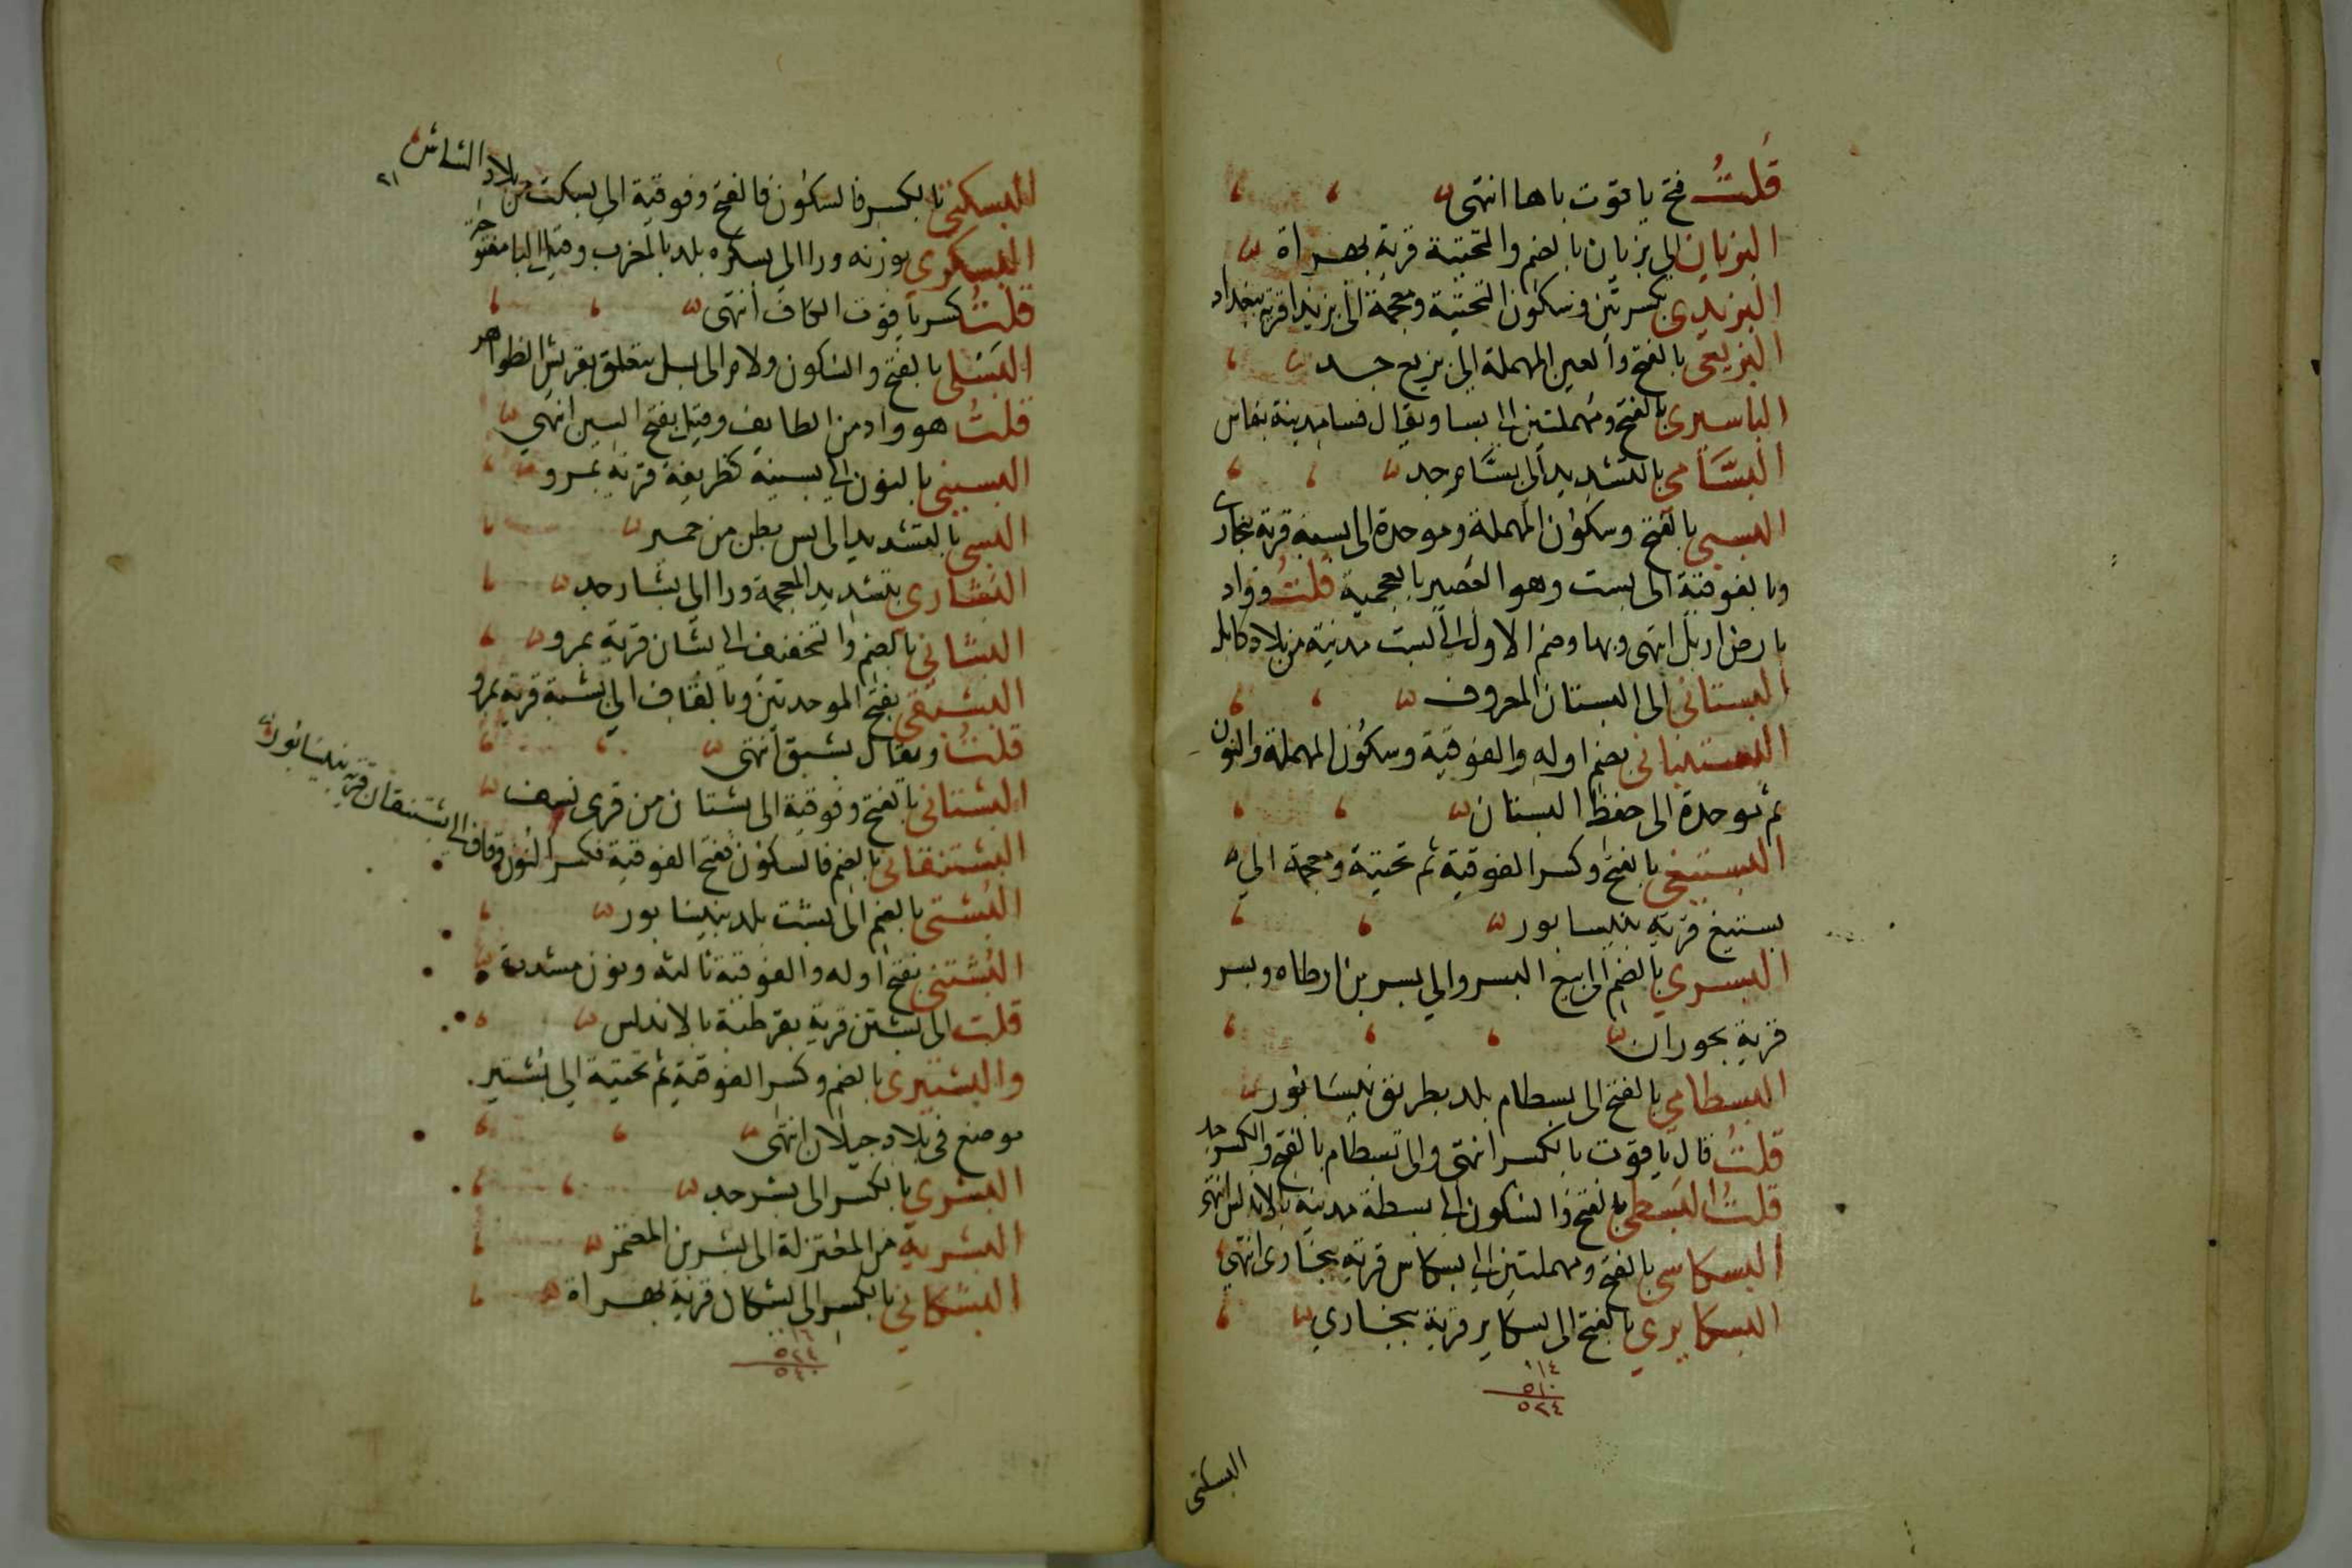 قلت فتح ياقوت باها انتهى
البزيان الى بزيان بالضم والتحتية قرية بهراة
البزيدى بكسرتين وسكون التحتية ومعجمة الى بزيدا قرية ببغداد
البزيعى بالفتح والعين المهملة الى بزيع جد
الباسيرى بالفتح ومهملتين الى بسا ويقال فسا مدينة بفاس
البسامي بالتشديد الى بسام جد
البسبى بالفتح وسكون المهملة وموحدة الى بسبة قرية ببخارى
وبالفوقية الى بست وهو القصير بالعجمية قلت وواد
بارض اربل انتهى وبها وضم الاول الى بست مدينة من بلاد كابل
البستانى الى البستان المعروف
البستنبانى بضم اوله والفوقية وسكون المهملة والنون
ثم بوحدة الى حفظ البستان
البستيغى بالفتح وكسر الفوقية ثم تحتية ومعجمة الى
بستيغ قرية بنيسابور
البسري بالضم الى بيع البسر والى بسر بن ارطاه وبسر
قرية بحوران
البسطامي بالفتح الى بسطام بلد بطريق نيسابور
قلت قال ياقوت بالكسر انتهى والى بسطام بالفتح والكسر جد
قلت البسطى بالفتح والسكون الى بسطة مدينة بالاندلس انتهى
البسكاسى بالفتح ومهملتين الى بسكاس قرية ببخارى انتهى
البسكايرى بالفتح الى بسكاير قرية ببخارى
١٤
٥١٠
٥٢٤
البسكتى
البسكتى بالكسر فالسكون فالفتح وفوقية الى بسكت من بلاد الشاش
البسكرى بوزنه ورا الى بسكره بلد بالمغرب وقيل البا مفتوحة
قلت كسر ياقوت الكاف انتهى
البسلى بالفتح والسكون ولام الى بسل يتعلق بقريش الظواهر
قلت هو واد من الطايف وقيل بفتح السين انتهى
البسينى بالنون الى بسينة كظريفة قرية بمرو
البسى بالتشديد الى بس بطن من حمير
البشارى بتشديد المعجمة ورا الى بشار جد
البشانى بالضم والتخفيف الى بشان قرية بمرو
البشبقى بفتح الموحدتين وبالقاف الى بشبة قرية بمرو
قلت ويقال بشبق انتهى
البشتانى بالفتح وفوقية الى بشتان من قرى نسف
البشتنقانى بالضم فالسكون ففتح الفوقية فكسر النون وقاف الى بشتنقان قرية بنيسابور
البشتى بالضم الى بشت بلد بنيسابور
البشتنى بفتح اوله والفوقية ثالثه ونون مشددة
قلت الى بشتن قرية بقرطبة بالاندلس
والبشتيرى بالضم وكسر الفوقية ثم تحتية الى بشتير
موضع فى بلاد جيلان انتهى
البشري بالكسر الى بشر جد
البشرية من المعتزلة الى بشر بن المعتمر
البشكانى بالكسر الى بشكان قرية بهراة
١٦
٥٢٤
٥٤٠